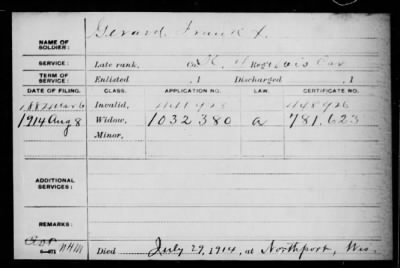 NAME OF SOLDIER: Gerard Frank X.
SERVICE: Late rank, Co. K, 4 Reg't Wis Cav
TERM OF SERVICE: Enlisted , 1 Discharged , 1
DATE OF FILING. CLASS. APPLICATION NO. LAW. CERTIFICATE NO.
1882 Mar 6 Invalid, 448926
1914 Aug 8 Widow, 1032380 a 781.623
Minor,
ADDITIONAL SERVICES:
REMARKS:
Died July 29, 1914, at Northport, Wis.